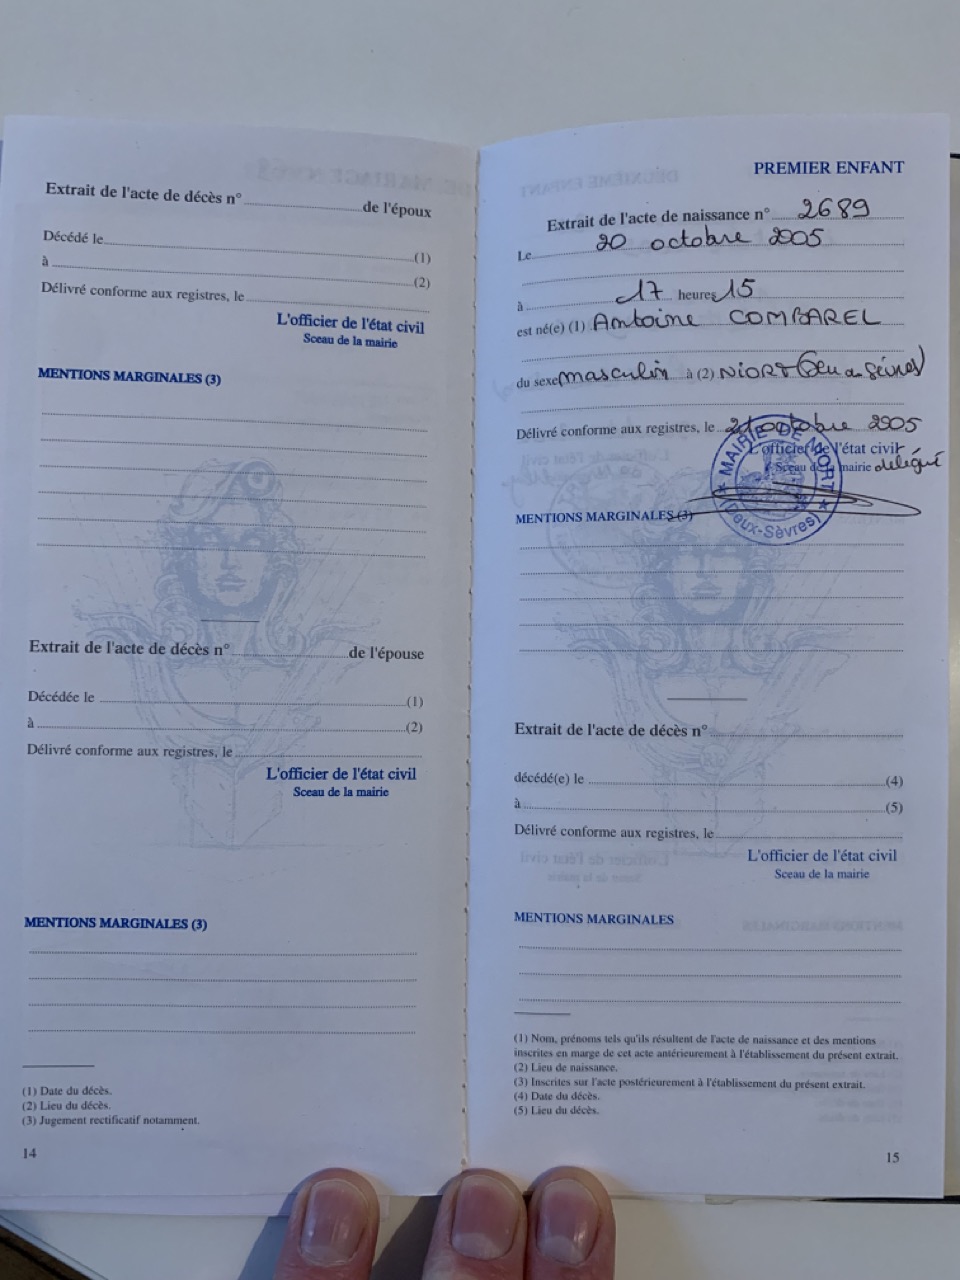 Extrait de l'acte de décès n° de l'époux
Décédé le (1)
à (2)
Délivré conforme aux registres, le
L'officier de l'état civil
Sceau de la mairie
MENTIONS MARGINALES (3)
Extrait de l'acte de décès n° de l'épouse
Décédée le (1)
à (2)
Délivré conforme aux registres, le
L'officier de l'état civil
Sceau de la mairie
MENTIONS MARGINALES (3)
(1) Date du décès.
(2) Lieu du décès.
(3) Jugement rectificatif notamment.
14
PREMIER ENFANT
Extrait de l'acte de naissance n° 2689
Le 20 octobre 2005
à 17 heures 15
est né(e) (1) Antoine COMBAREL
du sexe masculin à (2) NIORT (Deux Sèvres)
Délivré conforme aux registres, le 21 octobre 2005
L'officier de l'état civil
Sceau de la mairie délégué
MAIRIE DE NIORT
(Deux-Sèvres)
MENTIONS MARGINALES (3)
Extrait de l'acte de décès n°
décédé(e) le (4)
à (5)
Délivré conforme aux registres, le
L'officier de l'état civil
Sceau de la mairie
MENTIONS MARGINALES
(1) Nom, prénoms tels qu'ils résultent de l'acte de naissance et des mentions
inscrites en marge de cet acte antérieurement à l'établissement du présent extrait.
(2) Lieu de naissance.
(3) Inscrites sur l'acte postérieurement à l'établissement du présent extrait.
(4) Date du décès.
(5) Lieu du décès.
15